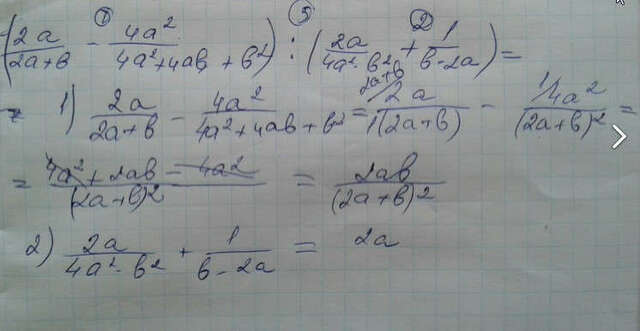 ① ③ ②
(2a/(2a+b) - 4a²/(4a²+4ab+b²)) : (2a/(4a²-b²) + 1/(b-2a)) =
= 1) 2a/(2a+b) - 4a²/(4a²+4ab+b²) = 2a+b/ 2a/1(2a+b) - 1/ 4a²/(2a+b)² =
= (4a²+2ab-4a²)/(2a+b)² = 2ab/(2a+b)²
2) 2a/(4a²-b²) + 1/(b-2a) = 2a